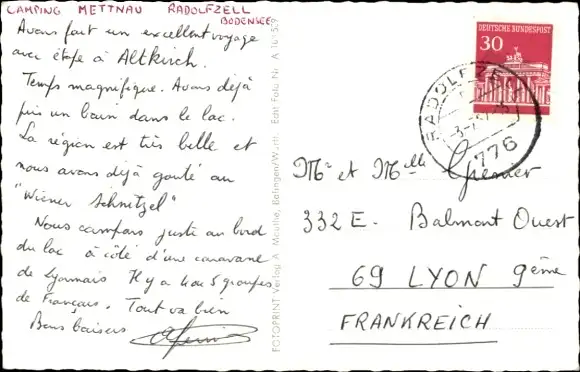 CAMPING METTNAU RADOLFZELL
BODENSEE
Avons fait un excellent voyage
avec étape à Altkirch.
Temps magnifique. Avons déjà
pris un bain dans le lac.
La région est très belle et
nous avons déjà gouté au
"Wiener Schnitzel"
Nous campons juste au bord
du lac à côté d'une caravane
de Lyonnais Il y a 4 ou 5 groupes
de Français. Tout va bien
Bons baisers
FOTOPRINT Verlag A. Mauthe, Balingen/Württ. Edit. Foto Nr. A
DEUTSCHE BUNDESPOST
30
RADOLFZELL
776
Mr et Melle Grenier
332 E. Balmont Ouest
69 LYON 9ème
FRANKREICH